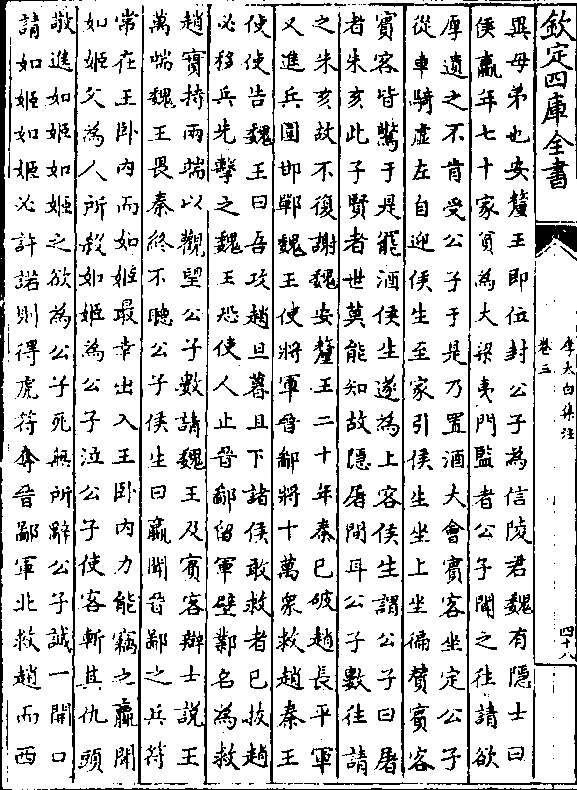 欽定四庫全書
李太白集注
卷三
四十八
異母弟也安釐王即位封公子為信陵君魏有隱士曰
侯嬴年七十家貧為大梁夷門監者公子聞之往請欲
厚遺之不肯受公子于是乃置酒大會賓客坐定公子
從車騎虛左自迎侯生至家引侯生坐上坐徧贊賓客
賓客皆驚于是罷酒侯生遂為上客侯生謂公子曰屠
者朱亥此子賢者世莫能知故隱屠間耳公子數往請
之朱亥故不復謝魏安釐王二十年秦已破趙長平軍
又進兵圍邯鄲魏王使將軍晉鄙將十萬衆救趙秦王
使使告魏王曰吾攻趙旦暮且下諸侯敢救者已拔趙
必移兵先擊之魏王恐使人止晉鄙留軍壁鄴名為救
趙實持兩端以觀望公子數請魏王及賓客辯士說王
萬端魏王畏秦終不聽公子侯生曰嬴聞晉鄙之兵符
常在王卧内而如姬最幸出入王卧内力能竊之嬴聞
如姬父為人所殺如姬為公子泣公子使客斬其仇頭
敬進如姬如姬之欲為公子死無所辭公子誠一開口
請如姬如姬必許諾則得虎符奪晉鄙軍北救趙而西